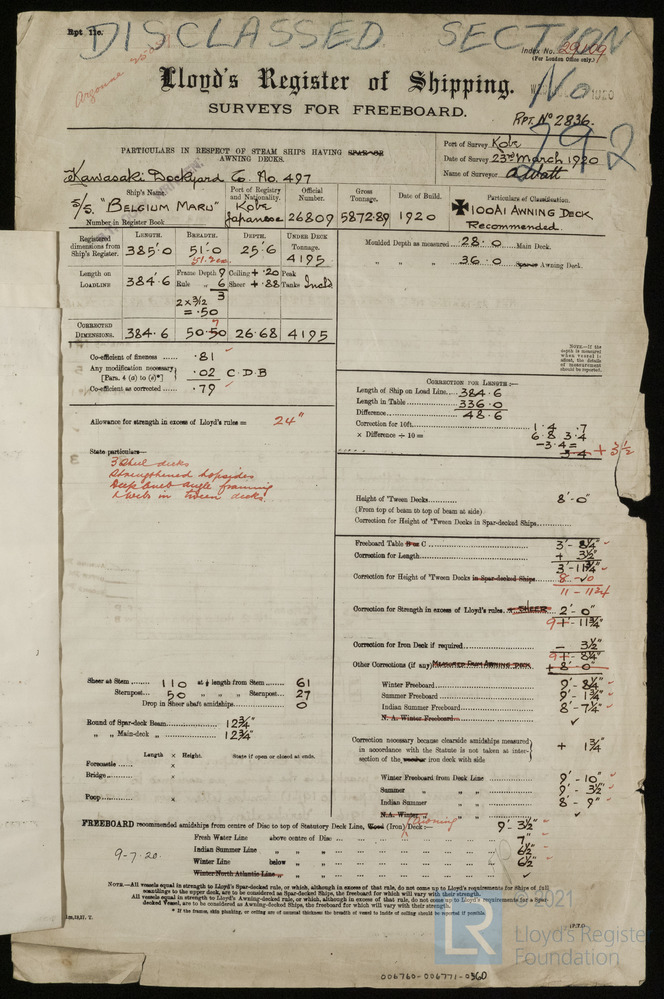 Rpt. 11c.
DISCLASSED SECTION
Argonne
Index No. 29109
(For London Office only.)
Lloyd's Register of Shipping.
No 792
SURVEYS FOR FREEBOARD.
RPT. No 2836.
PARTICULARS IN RESPECT OF STEAM SHIPS HAVING SPAR OR
AWNING DECKS.
Port of Survey Kobe
Date of Survey 23rd March 1920
Name of Surveyor A. Watt
Kawasaki Dockyard Co. No. 497
Ship's Name. Port of Registry and Nationality. Official Number. Gross Tonnage. Date of Build. Particulars of Classification.
S/S. "BELGIUM MARU" Kobe Japanese 26809 5872.89 1920 ✠100A1 AWNING DECK
Number in Register Book
Recommended.
Registered dimensions from Ship's Register. LENGTH. BREADTH. DEPTH. UNDER DECK Tonnage.
385.0 51.0 25.6 4195
Moulded Depth as measured 28.0 Main Deck.
" " " 36.0 Spar or Awning Deck.
Length on LOADLINE 384.6 Frame Depth 9 Ceiling + .20 Peak
Rule " 6 Sheer + .88 Tanks Incld
3
2 x 3/12
= .50
CORRECTED DIMENSIONS. 384.6 50.50 26.68 4195
NOTE.—If the depth is measured when vessel is afloat, the details of measurement should be reported.
Co-efficient of fineness .81
Any modification necessary [Para. 4 (a) to (e)*] .02 C.D.B
Co-efficient as corrected .79
CORRECTION FOR LENGTH:—
Length of Ship on Load Line 384.6
Length in Table 336.0
Difference 48.6
Correction for 10ft. 1.4 .7
× Difference ÷ 10 = 6.8 3.4
-3.4 =
3.4 + 3½
Allowance for strength in excess of Lloyd's rules = 24"
State particulars—
3 Steel decks
Strengthened topsides
Deep bulb angle framing
& webs in tween decks.
Height of 'Tween Decks 8'-0"
(From top of beam to top of beam at side)
Correction for Height of 'Tween Decks in Spar-decked Ships
Freeboard Table B or C 3'-8¼"
Correction for Length + 3½"
3'-11¾"
Correction for Height of 'Tween Decks in Spar-decked Ships 8-0
11-11¾
Correction for Strength in excess of Lloyd's rules. & SHEER 2'-0"
9'-11¾"
Correction for Iron Deck if required — 3½"
9'-8¼"
Other Corrections (if any) MEASURED FROM AWNING DECK + 8'-0"
Sheer at Stem 110 at ⅛ length from Stem 61
Sternpost 50 " " " Sternpost 27
Drop in Sheer abaft amidships 0
Winter Freeboard 9'-8¼"
Summer Freeboard 9'-1¾"
Indian Summer Freeboard 8'-7¼"
N. A. Winter Freeboard
Round of Spar-deck Beam 12¾"
" " Main-deck " 12¾"
Correction necessary because clearside amidships measured in accordance with the Statute is not taken at intersection of the wooden iron deck with side + 1¾"
Length × Height. State if open or closed at ends.
Forecastle ×
Bridge ×
Poop ×
Winter Freeboard from Deck Line 9'-10"
Summer " " " 9'-3½"
Indian Summer " " 8'-9"
N.A. Winter "
FREEBOARD recommended amidships from centre of Disc to top of Statutory Deck Line, Wood (Iron) Awning Deck:— 9'-3½"
Fresh Water Line above centre of Disc 7"
Indian Summer Line " " 6½"
Winter Line below " 6½"
Winter North Atlantic Line " "
9-7-20.
NOTE.—All vessels equal in strength to Lloyd's Spar-decked rule, or which, although in excess of that rule, do not come up to Lloyd's requirements for Ships of full scantlings to the upper deck, are to be considered as Spar-decked Ships, the freeboard for which will vary with their strength.
All vessels equal in strength to Lloyd's Awning-decked rule, or which, although in excess of that rule, do not come up to Lloyd's requirements for a Spar-decked Vessel, are to be considered as Awning-decked Ships, the freeboard for which will vary with their strength.
* If the frames, skin planking, or ceiling are of unusual thickness the breadth of vessel to inside of ceiling should be reported if possible.
© 2021
LR
Lloyd's Register
Foundation
006760-006771-0360